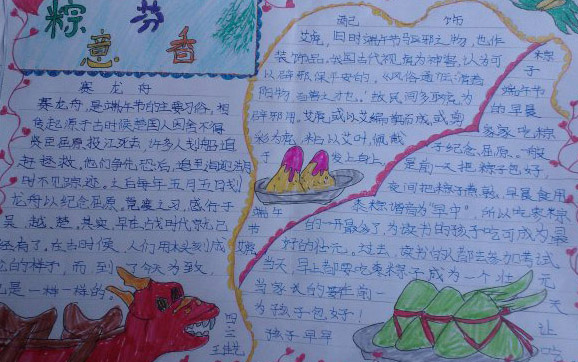 粽 芬
意 香
赛龙舟
赛龙舟,是端午节的主要习俗,相
传起源于古时候楚国人因舍不得
贤臣屈原投江死去,许多人划船追
赶拯救,他们争先恐后,追至洞庭湖
时不见踪迹。之后每年五月五日划
龙舟以纪念屈原。竞渡之习,盛行于
吴、越、楚。其实,早在战国时代就已
经有了。在古时候,人们用木头刻成
龙的样子,而到了今天为致,
也是一样一样的。
配饰
艾虎,旧时端午节驱邪之物,也作
装饰品。我国古代视虎为神兽,认为可
以辟邪保平安的,《风俗通》云:虎者
阳物,百兽之才也。故民间多取虎为
辟邪用,艾虎,或以艾编剪而成,或剪
彩为虎,粘以艾叶,佩戴
于 发上身上。
粽
子
端午节
的早晨
家家吃粽
子纪念屈原,一般
是前一天把粽子包好,
夜间把粽子煮熟,早晨食用
来粽谐音为“早中”所以吃枣粽
的一开最多了,为读书的孩子吃可成为最
好的状元。过去,读书的人都去参加考试
当天,早上都要吃枣粽子成为一个状
元
端午节
为孩子包好!
孩子早早
天
让
吃
四三